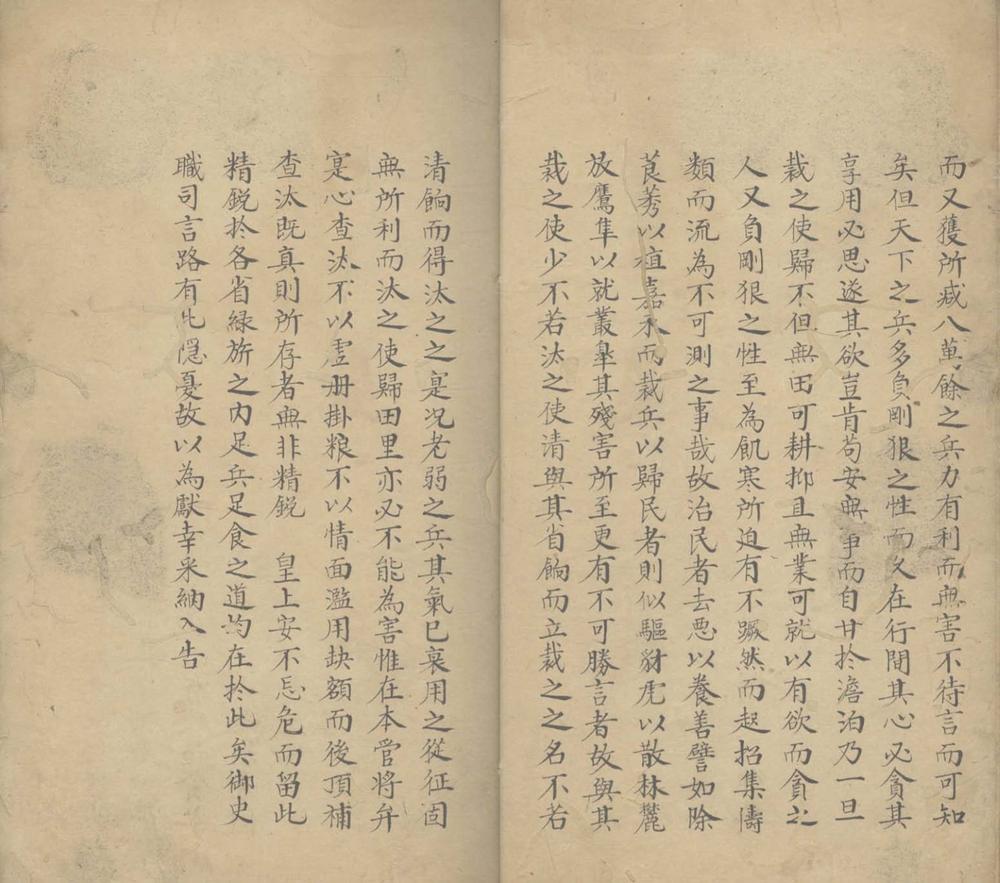 而又獲所裁八萬餘之兵力有利而無害不待言而可知
矣但天下之兵多負剛狠之性而久在行間其心必貪其
享用必思遂其欲豈肯苟安無事而自甘於澹泊乃一旦
裁之使歸不但無田可耕抑且無業可就以有欲而貪之
人又負剛狠之性至為飢寒所迫有不蹶然而起招集儔
類而流為不可測之事哉故治民者去惡以養善譬如除
莨莠以植嘉禾而裁兵以歸民者則似驅豺虎以散林麓
放鷹隼以就叢皋其殘害所至更有不可勝言者故與其
裁之使少不若汰之使清與其省餉而立裁之之名不若
清餉而得汰之之寔况老弱之兵其氣已衰用之從征固
無所利而汰之使歸田里亦必不能為害惟在本官將弁
寔心查汰不以虛册掛粮不以情面濫用缺額而後頂補
查汰既真則所存者無非精銳 皇上安不忘危而留此
精銳於各省綠旂之內足兵足食之道均在於此矣御史
職司言路有此隱憂故以為獻幸采納入告